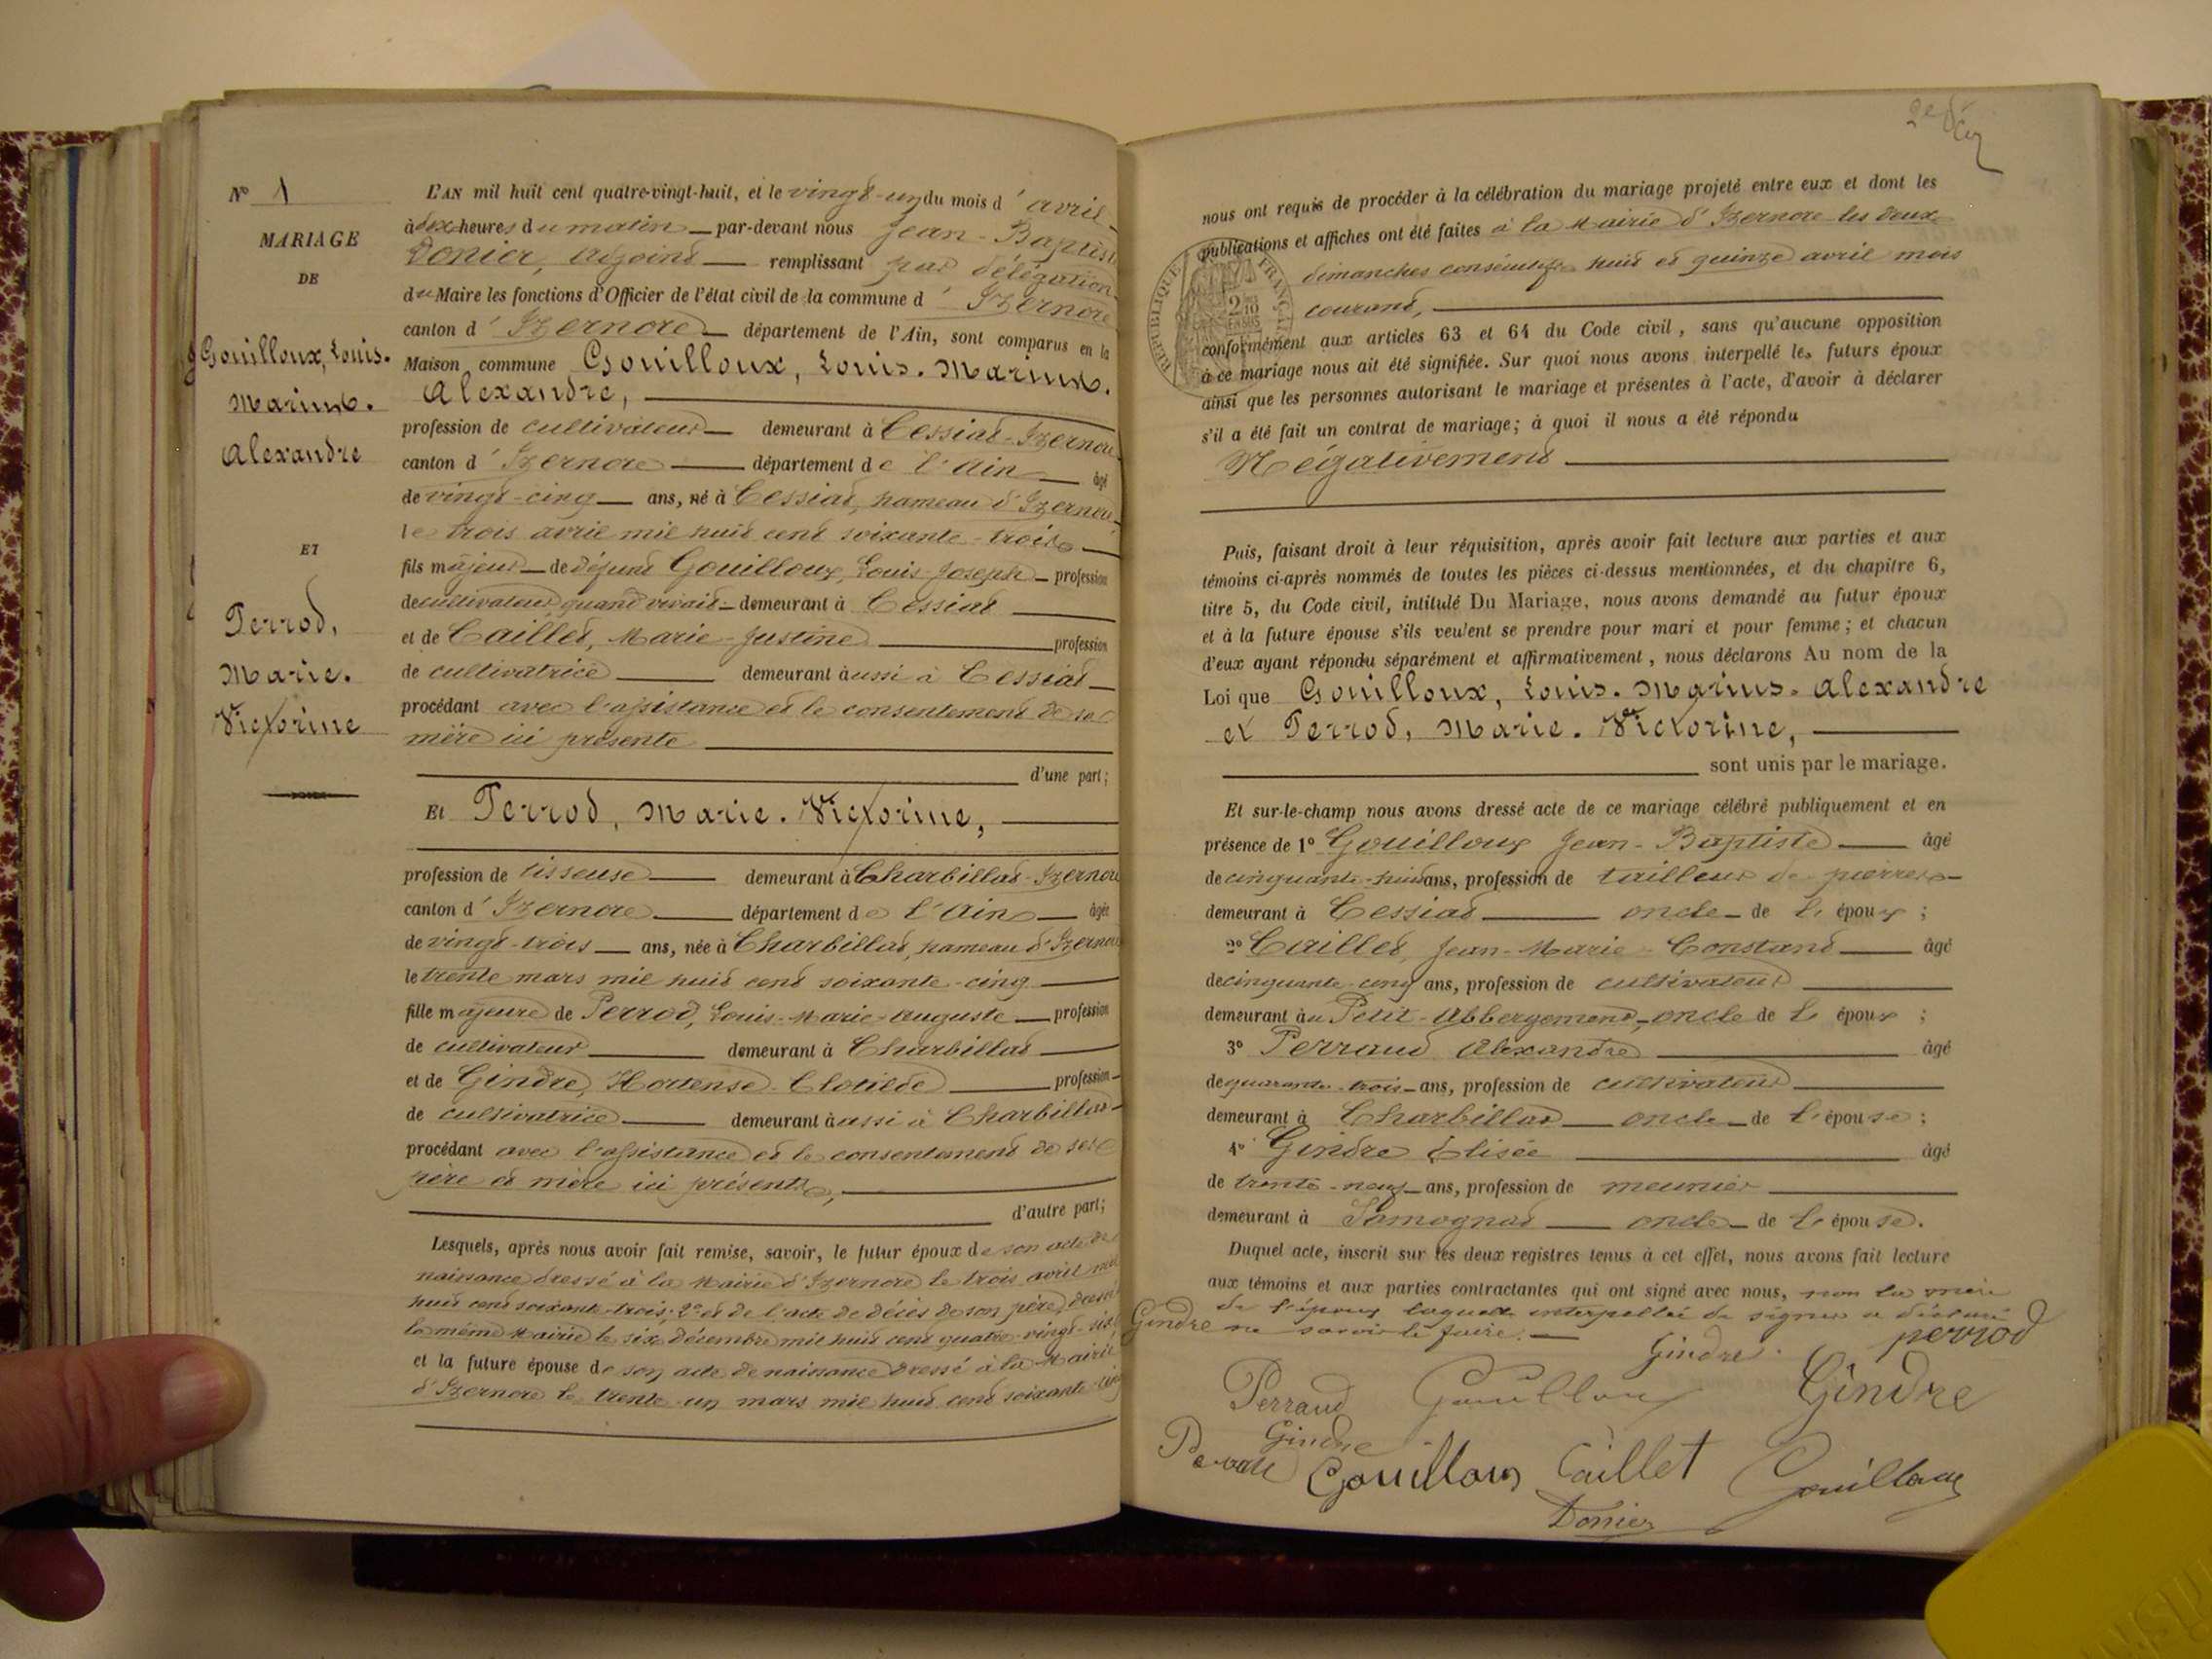 N° 1
MARIAGE
DE
Gouilloux, Louis.
Marius.
Alexandre
ET
Perrod,
Marie.
Victorine
L'AN mil huit cent quatre-vingt-huit, et le vingt-un du mois d'avril
à dix heures du matin par-devant nous Jean-Baptiste
Donier, adjoint remplissant par délégation
du Maire les fonctions d'Officier de l'état civil de la commune d'Izernore
canton d'Izernore département de l'Ain, sont comparus en la
Maison commune Gouilloux, Louis. Marius.
Alexandre,
profession de cultivateur demeurant à Cessiat-Izernore
canton d'Izernore département de l'Ain âgé
de vingt-cinq ans, né à Cessiat, hameau d'Izernore
le trois avril mil huit cent soixante-trois
fils majeur de défunt Gouilloux, Louis-Joseph profession
de cultivateur quand vivait demeurant à Cessiat
et de Caillet, Marie-Justine profession
de cultivatrice demeurant aussi à Cessiat
procédant avec l'assistance et le consentement de sa
mère ici présente
d'une part;
Et Perrod, Marie. Victorine,
profession de tisseuse demeurant à Charbillat-Izernore
canton d'Izernore département de l'Ain âgée
de vingt-trois ans, née à Charbillat, hameau d'Izernore
le trente mars mil huit cent soixante-cinq
fille majeure de Perrod, Louis-Marie-Auguste profession
de cultivateur demeurant à Charbillat
et de Gindre, Hortense-Clotilde profession
de cultivatrice demeurant aussi à Charbillat
procédant avec l'assistance et le consentement de ses
père et mère ici présents,
d'autre part;
Lesquels, après nous avoir fait remise, savoir, le futur époux de son acte de
naissance dressé à la Mairie d'Izernore le trois avril mil
huit cent soixante-trois; 2° et de l'acte de décès de son père, dressé
la même Mairie le six décembre mil huit cent quatre-vingt-six
et la future épouse de son acte de naissance dressé à la Mairie
d'Izernore le trente-un mars mil huit cent soixante-cinq
nous ont requis de procéder à la célébration du mariage projeté entre eux et dont les
publications et affiches ont été faites à la Mairie d'Izernore les deux
dimanches consécutifs huit et quinze avril mois
courant,
RÉPUBLIQUE FRANÇAISE
2/10 EN SUS
conformément aux articles 63 et 64 du Code civil, sans qu'aucune opposition
à ce mariage nous ait été signifiée. Sur quoi nous avons interpellé les futurs époux
ainsi que les personnes autorisant le mariage et présentes à l'acte, d'avoir à déclarer
s'il a été fait un contrat de mariage; à quoi il nous a été répondu
Négativement
Puis, faisant droit à leur réquisition, après avoir fait lecture aux parties et aux
témoins ci-après nommés de toutes les pièces ci-dessus mentionnées, et du chapitre 6,
titre 5, du Code civil, intitulé Du Mariage, nous avons demandé au futur époux
et à la future épouse s'ils veulent se prendre pour mari et pour femme; et chacun
d'eux ayant répondu séparément et affirmativement, nous déclarons Au nom de la
Loi que Gouilloux, Louis. Marius. Alexandre
et Perrod, Marie. Victorine,
sont unis par le mariage.
Et sur-le-champ nous avons dressé acte de ce mariage célébré publiquement et en
présence de 1° Gouilloux Jean-Baptiste âgé
de cinquante-huit ans, profession de tailleur de pierres
demeurant à Cessiat oncle de l'époux;
2° Caillet, Jean-Marie-Constant âgé
de cinquante-cinq ans, profession de cultivateur
demeurant au Petit-Abbergement, oncle de l'époux;
3° Perraud Alexandre âgé
de quarante-trois ans, profession de cultivateur
demeurant à Charbillat oncle de l'épouse;
4° Gindre Élisée âgé
de trente-neuf ans, profession de meunier
demeurant à Samognat oncle de l'épouse.
Duquel acte, inscrit sur les deux registres tenus à cet effet, nous avons fait lecture
aux témoins et aux parties contractantes qui ont signé avec nous, non la mère
de l'époux laquelle interpellée de signer a déclaré
Gindre ne savoir le faire.
Gindre perrod
Perraud Gouilloux Gindre
Gindre
Gouilloux Caillet Gouilloux
Donier